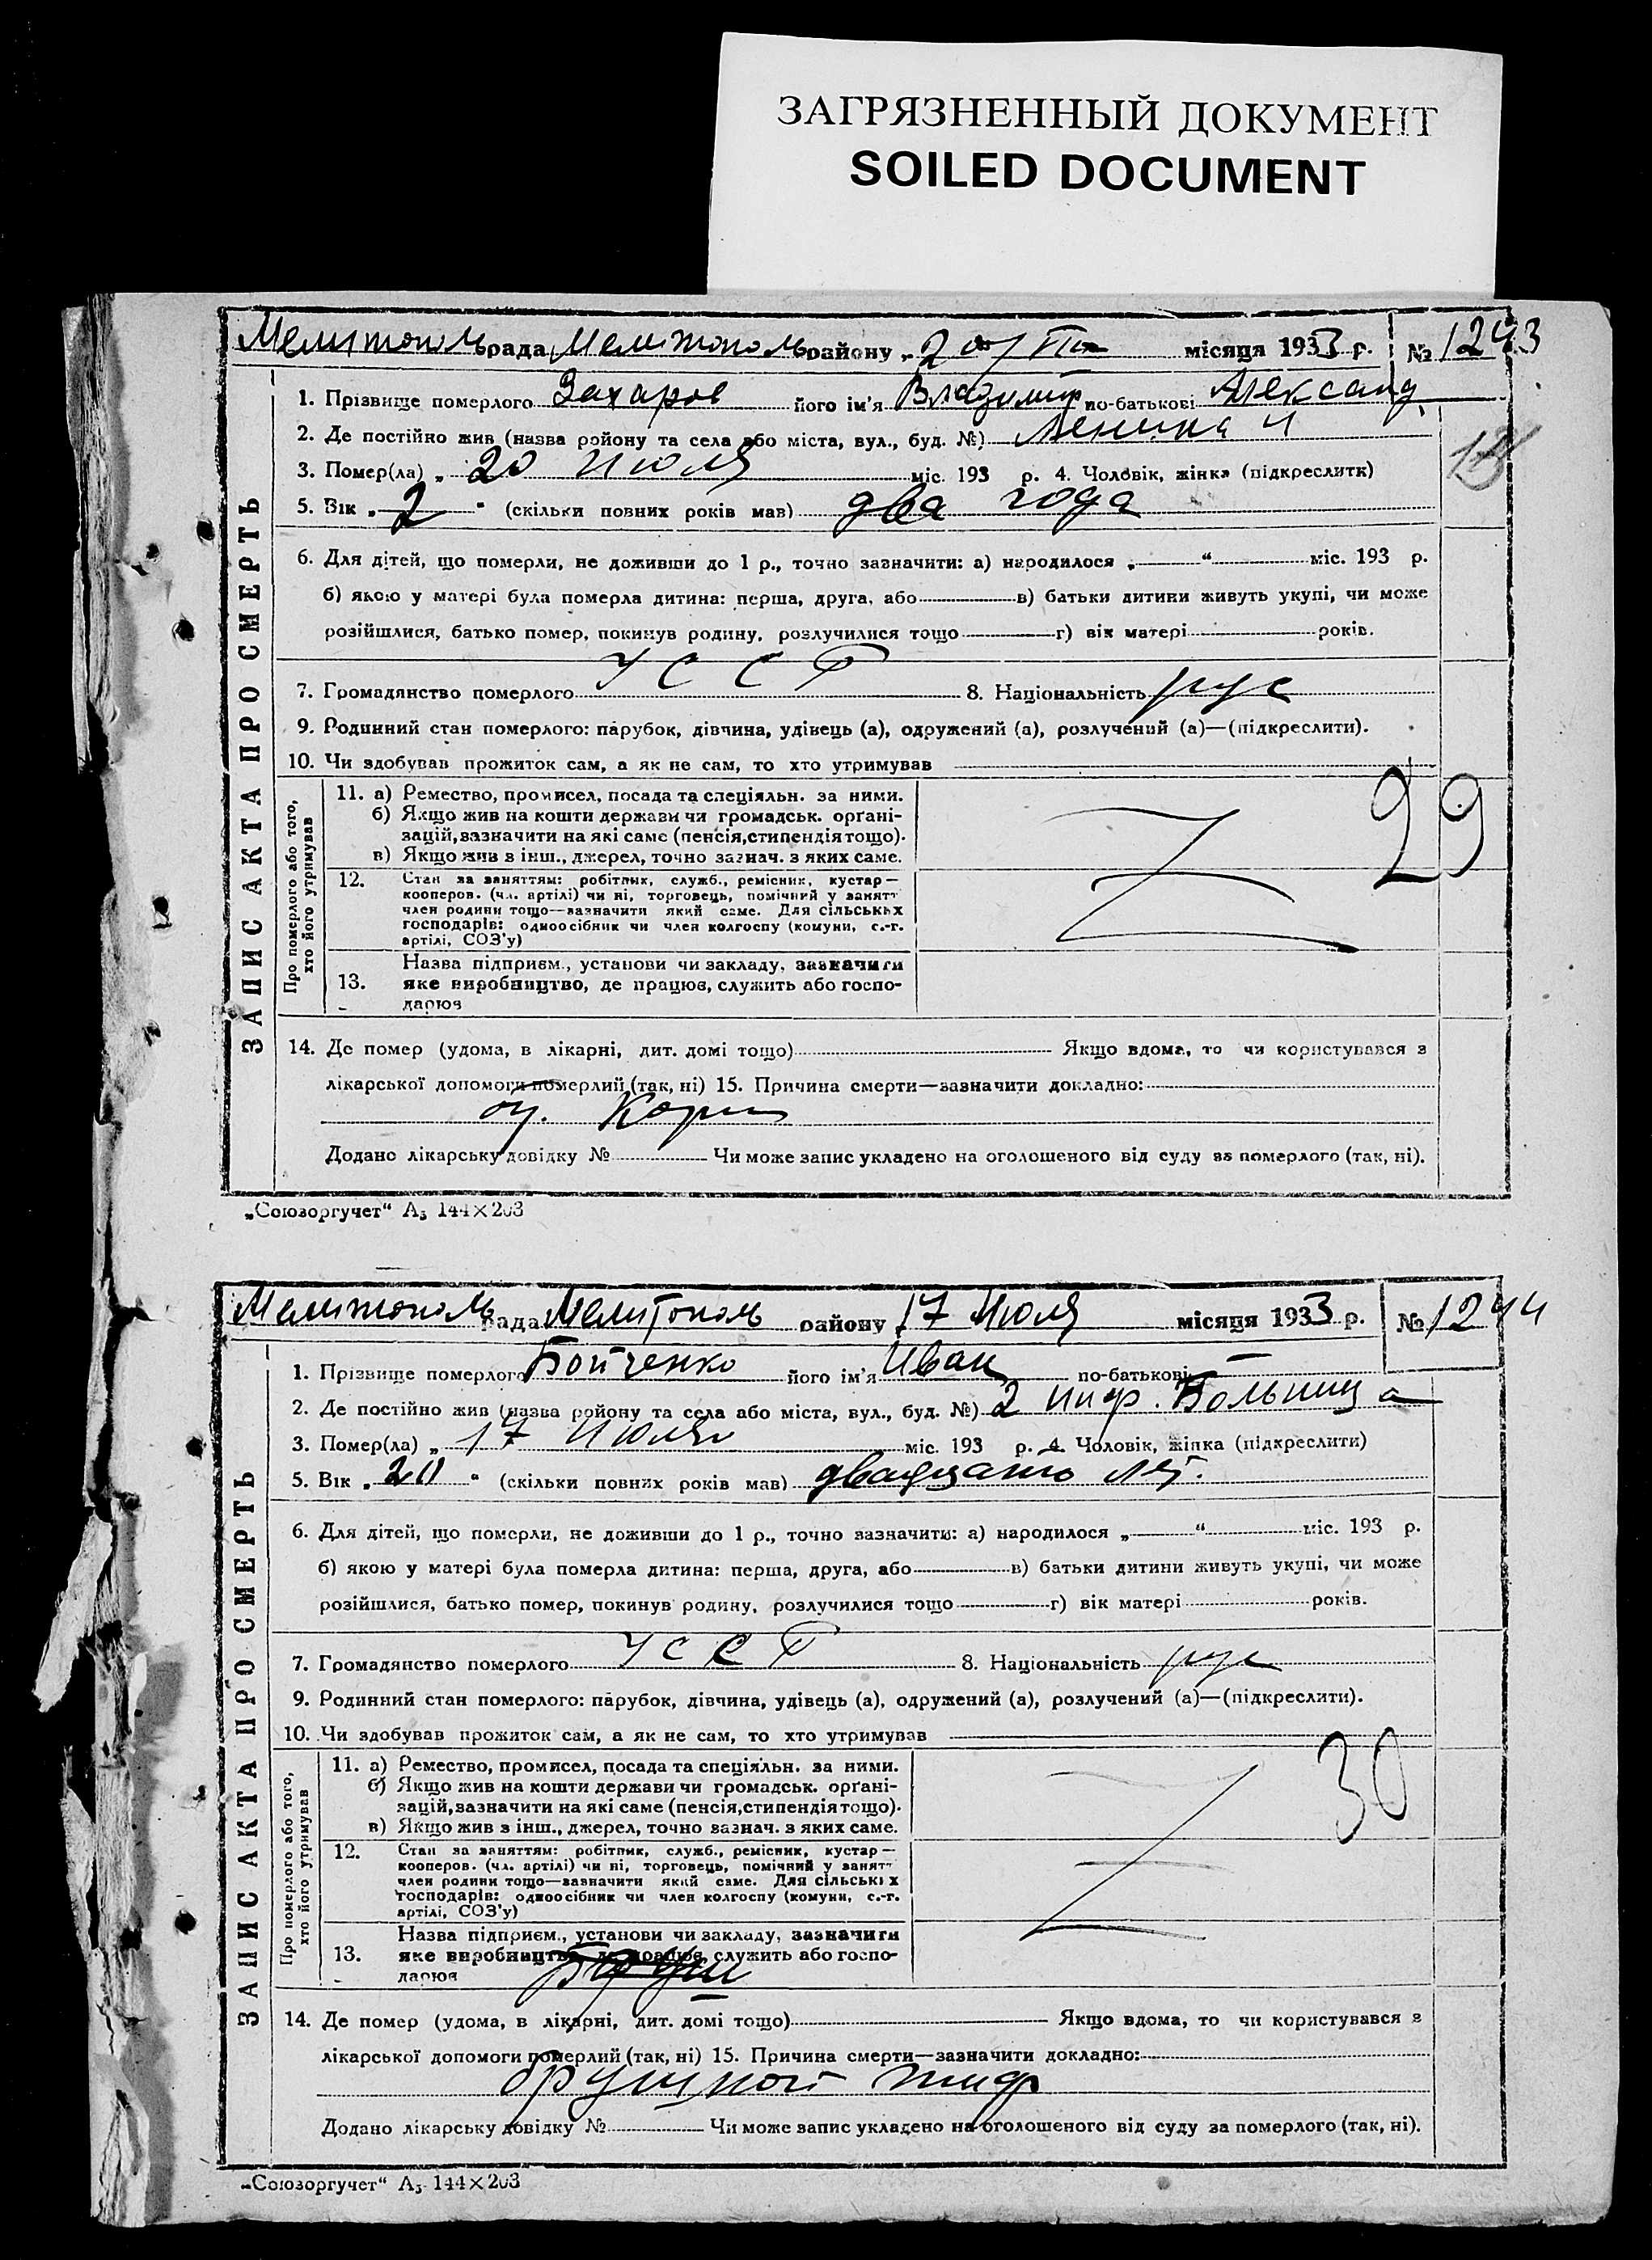 ЗАГРЯЗНЕННЫЙ ДОКУМЕНТ
SOILED DOCUMENT
Мелитополь рада Мелитополь району „20/VII місяця 1933 р. № 1243
ЗАПИС АКТА ПРО СМЕРТЬ
1. Прізвище померлого Захаров його ім'я Владимир по-батькові Александ
2. Де постійно жив (назва ройону та села або міста, вул., буд. №) Ленина 11
3. Помер(ла) „ 20 июля міс. 193 р. 4. Чоловік, жінка (підкреслитк)
5. Вік „ 2 “ (скільки повних років мав) два года
6. Для дітей, що померли, не доживши до 1 р., точно зазначити: а) народилося „ “ міс. 193 р.
б) якою у матері була померла дитина: перша, друга, або в) батьки дитини живуть укупі, чи може
розійшлися, батько помер, покинув родину, розлучилися тощо г) вік матері років.
7. Громадянство померлого УССР 8. Національність рус
9. Родинний стан померлого: парубок, дівчина, удівець (а), одружений (а), розлучений (а)—(підкреслити).
10. Чи здобував прожиток сам, а як не сам, то хто утримував
Про померлого або того, хто його утримував
11. а) Ремество, промисел, посада та спеціяльн. за ними.
б) Якщо жив на кошти держави чи громадськ. орґані-
зацій, зазначити на які саме (пенсія, стипендія тощо).
в) Якщо жив з інш., джерел, точно зазнач. з яких саме.
29
12. Стан за заняттям: робітник, служб., ремісник, кустар—
кооперов. (чл. артілі) чи ні, торговець, помічний у занятт
член родини тощо—зазначити який саме. Для сільських
господарів: одноосібник чи член колгоспу (комуни, с.-г.
артілі, СОЗ'у)
Назва підприєм., установи чи закладу, зазначити
13. яке виробництво, де працює, служить або госпо-
дарює
14. Де помер (удома, в лікарні, дит. домі тощо) Якщо вдома, то чи користувався з
лікарської допомоги померлий (так, ні) 15. Причина смерти—зазначити докладно:
Додано лікарську довідку № Чи може запис укладено на оголошеного від суду за померлого (так, ні).
„Союзоргучет“ А5 144×203
Мелитополь рада Мелитополь району 17 Июля місяця 1933 р. № 1244
ЗАПИС АКТА ПРО СМЕРТЬ
1. Прізвище померлого Бойченко його ім'я Иван по-батькові —
2. Де постійно жив (назва ройону та села або міста, вул., буд. №) 2 инф. Больница
3. Помер(ла) „ 17 Июля міс. 193 р. 4. Чоловік, жінка (підкреслити)
5. Вік „ 20 “ (скільки повних років мав) двадцать лет.
6. Для дітей, що померли, не доживши до 1 р., точно зазначити: а) народилося „ “ міс. 193 р.
б) якою у матері була померла дитина: перша, друга, або в) батьки дитини живуть укупі, чи може
розійшлися, батько помер, покинув родину, розлучилися тощо г) вік матері років.
7. Громадянство померлого УССР 8. Національність рус
9. Родинний стан померлого: парубок, дівчина, удівець (а), одружений (а), розлучений (а)—(підкреслити).
10. Чи здобував прожиток сам, а як не сам, то хто утримував
Про померлого або того, хто його утримував
11. а) Ремество, промисел, посада та спеціяльн. за ними.
б) Якщо жив на кошти держави чи громадськ. орґані-
зацій, зазначити на які саме (пенсія, стипендія тощо).
в) Якщо жив з інш., джерел, точно зазнач. з яких саме.
30
12. Стан за заняттям: робітник, служб., ремісник, кустар—
кооперов. (чл. артілі) чи ні, торговець, помічний у занятт
член родини тощо—зазначити який саме. Для сільських
господарів: одноосібник чи член колгоспу (комуни, с.-г.
артілі, СОЗ'у)
Назва підприєм., установи чи закладу, зазначити
13. яке виробництво, де працює, служить або госпо-
дарює
14. Де помер (удома, в лікарні, дит. домі тощо) Якщо вдома, то чи користувався з
лікарської допомоги померлий (так, ні) 15. Причина смерти—зазначити докладно:
брушной тиф
Додано лікарську довідку № Чи може запис укладено на оголошеного від суду за померлого (так, ні).
„Союзоргучет“ А5 144×203